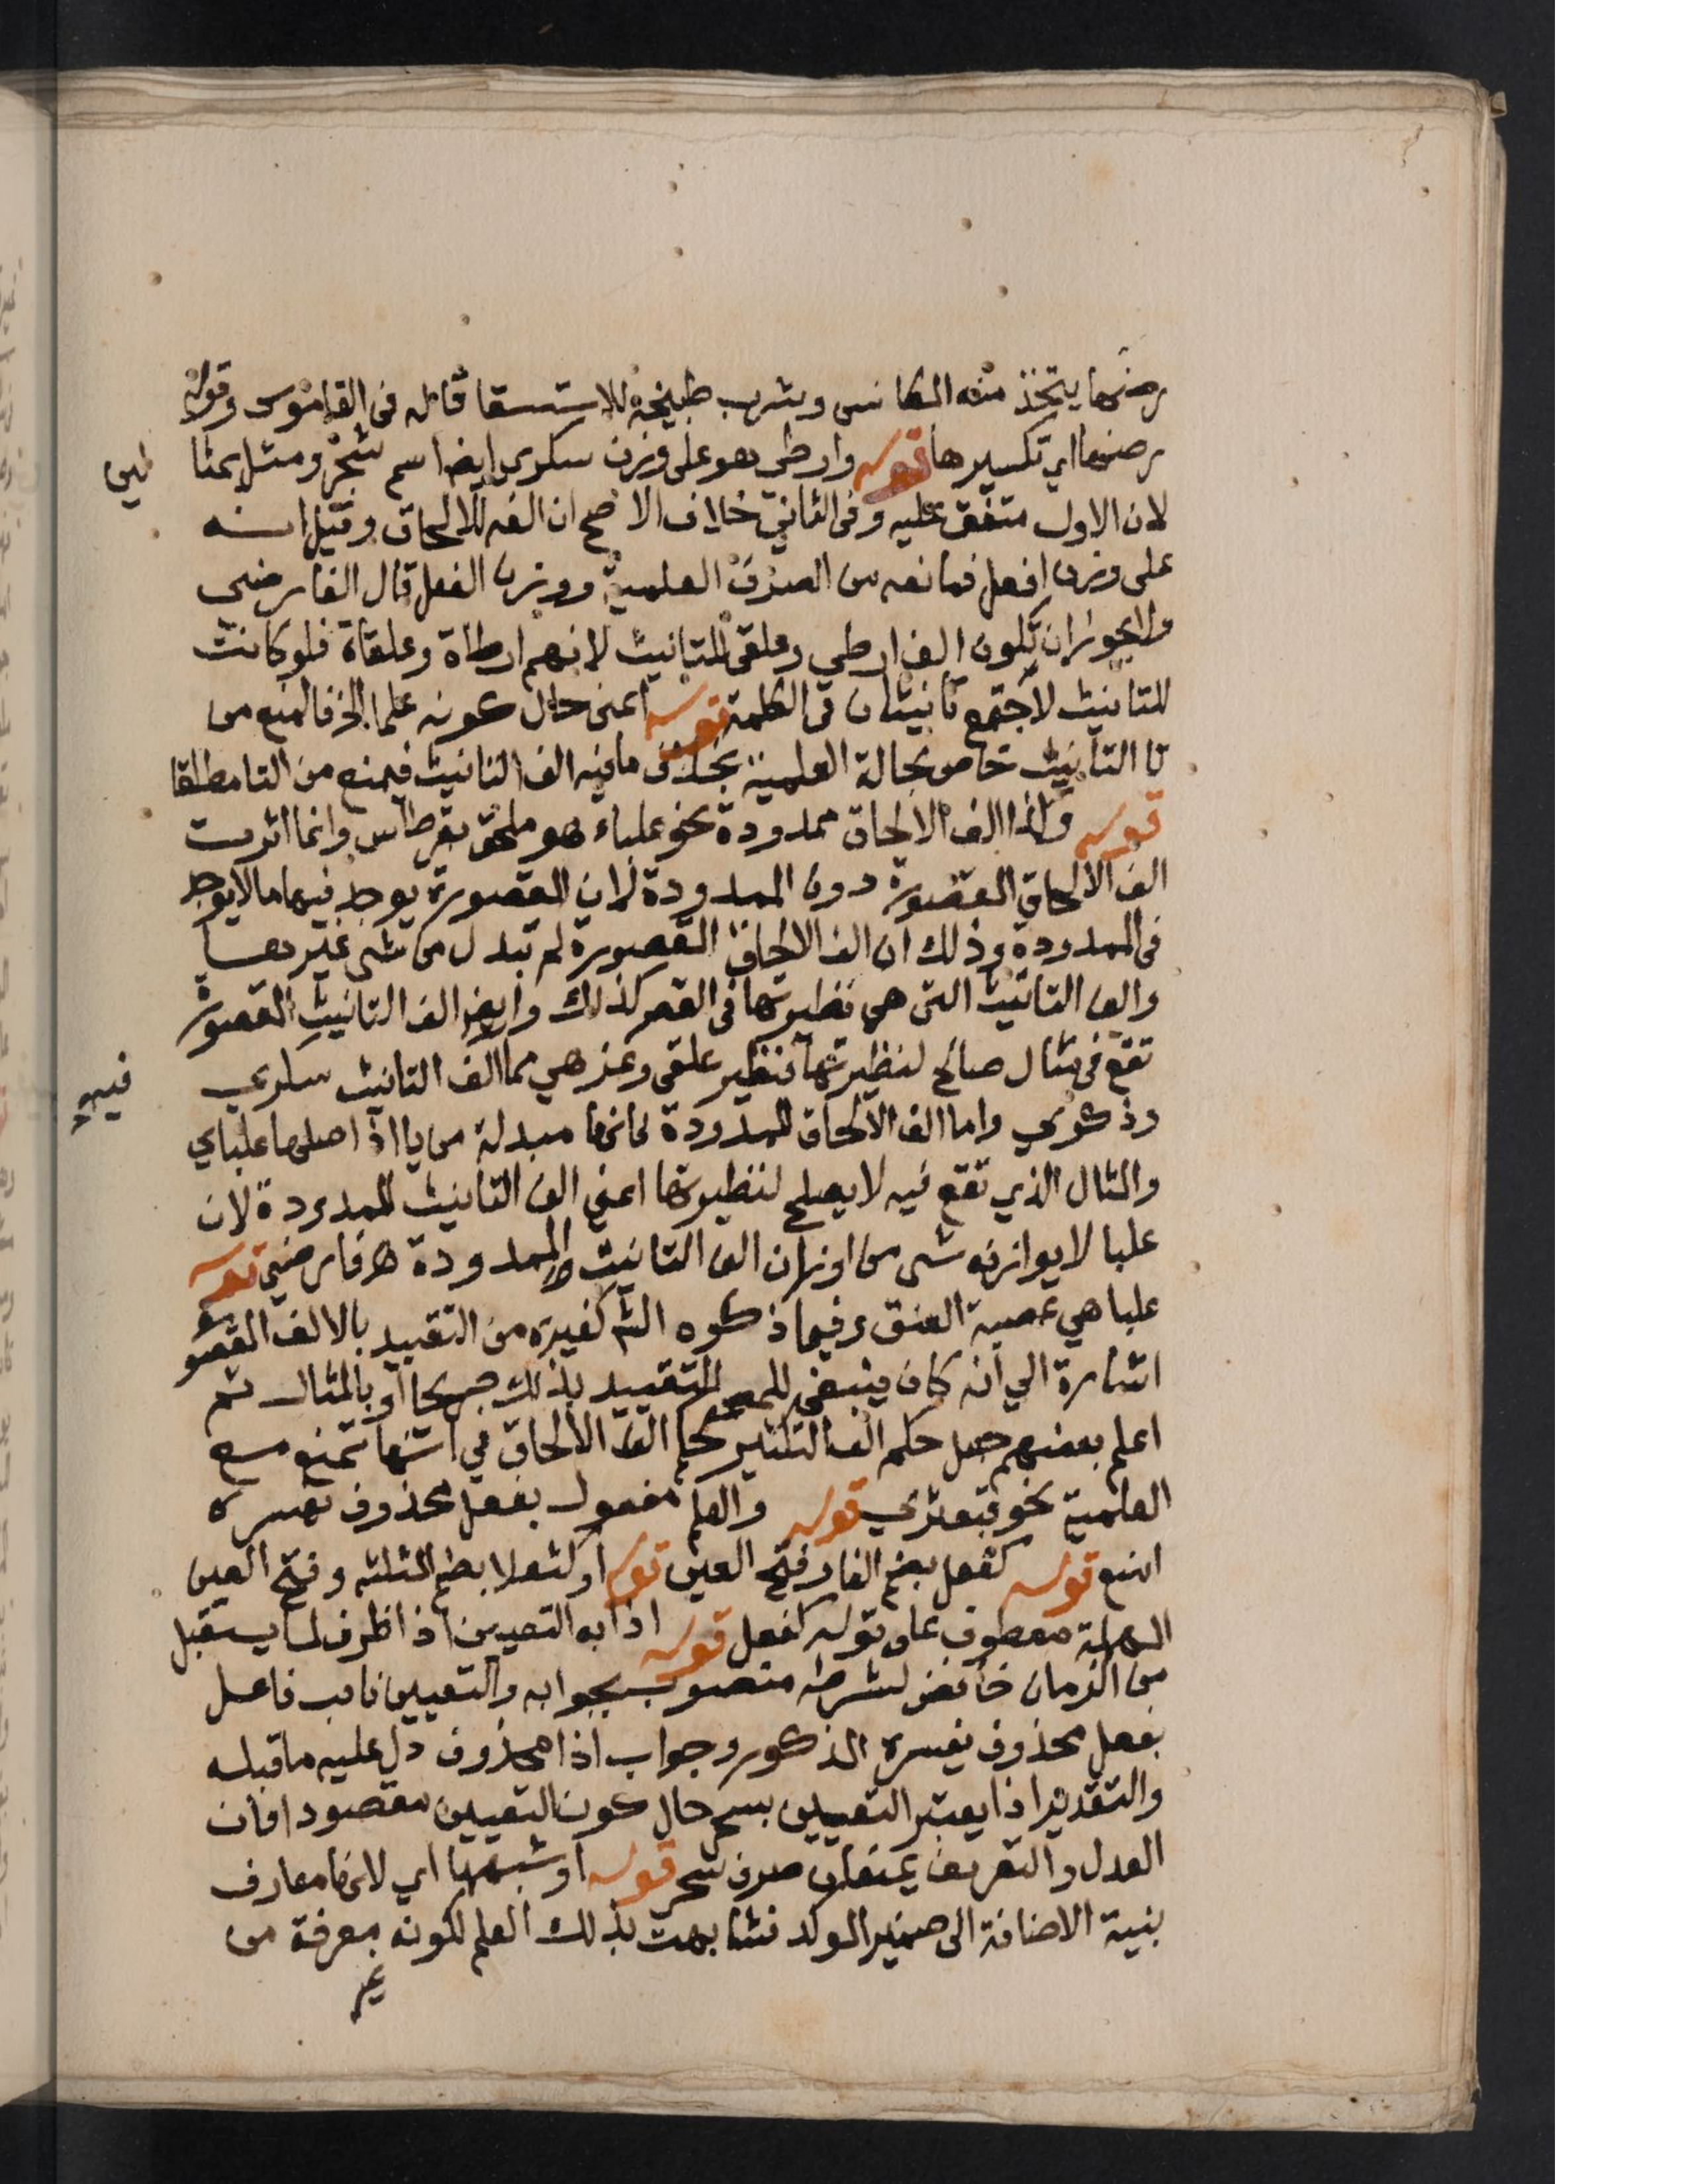 رضيها يتخذ منه المكانس ويشرب طبيخه للاستسقا قاله فى القاموس وقوله
رضيها اي تكسيرها قوله وارطى هو على وزن سكرى ايضا اسم شجر ومثل بمثا لين
لان الاول متفق عليه وفى الثاني خلاف الاصح ان الفه للالحاق وقيل انه
على وزن افعل فمانعه من الصرف العلمية ووزن الفعل قال الفارضي
ولا يجوز ان تكون الف ارطي وعلقى للتانيث لانهم ارطاة وعلقاة فلو كانت
للتانيث لاجتمع تانيثان في الكلمة قوله اعنى حال كونه علما الخ فالمنع من
تا التانيث خاص بحالة العلمية بخلاف مافيه الف التانيث فيمنع من التا مطلقا
قوله واذا الف الالحاق ممدودة نحو علباء هو ملحق بقرطاس وانما اثرت
الف الالحاق المقصورة دون الممدودة لان المقصورة يوجد فيها ما لا يوجد
فى الممدودة وذلك ان الف الالحاق المقصورة لم تبدل من شى غيرها
والف التانيث التى هى نظيرتها فى القصر كذلك وايضا الف التانيث المقصورة
تقع فى مثال صالح لنظيرتها فنظير علقى وعزهي مما فيه الف التانيث سكري
وذكري واما الف الالحاق الممدودة فانها مبدلة من يا اذ اصلها علباي
والمثال الذي تقع فيه لا يصلح لنظيرتها اعني الف التانيث الممدودة لان
علبا لا يوازنه شى من اوزان الف التانيث الممدودة اه فارضي قوله
علبا هي عصبة العنق وفيما ذكره الش كغيره من التقييد بالالف المقصورة
اشارة الي انه كان ينبغي للمص التقييد بذلك صريحا او بالمثال ثم
اعلم بعضهم جعل حكم الف التكثير كحكم الف الالحاق في انها تمنع مع
العلمية نحو قبعثرى قوله والعلم مفعول بفعل محذوف تفسره
امنع قوله كفعل بضم الفا وفتح العين قوله او كثعلا بضم المثلثه وفتح العين
المهملة معطوف على قوله كفعل قوله اذا به التعيين اذا ظرف لما يستقبل
من الزمان خافض لشرطه منصوب بجوابه والتعيين نايب فاعل
بفعل محذوف يفسره المذكور وجواب اذا محذوف دل عليه ما قبله
والتقدير اذا يعتبر التعيين بسحر حال كون التعيين مقصودا فان
العدل والتعريف يمنعان صرف سحر قوله او شبهها اي لانها معارف
بنية الاضافة الى ضمير الموكد فشابهت بذلك العلم لكونه معرفة من
غير